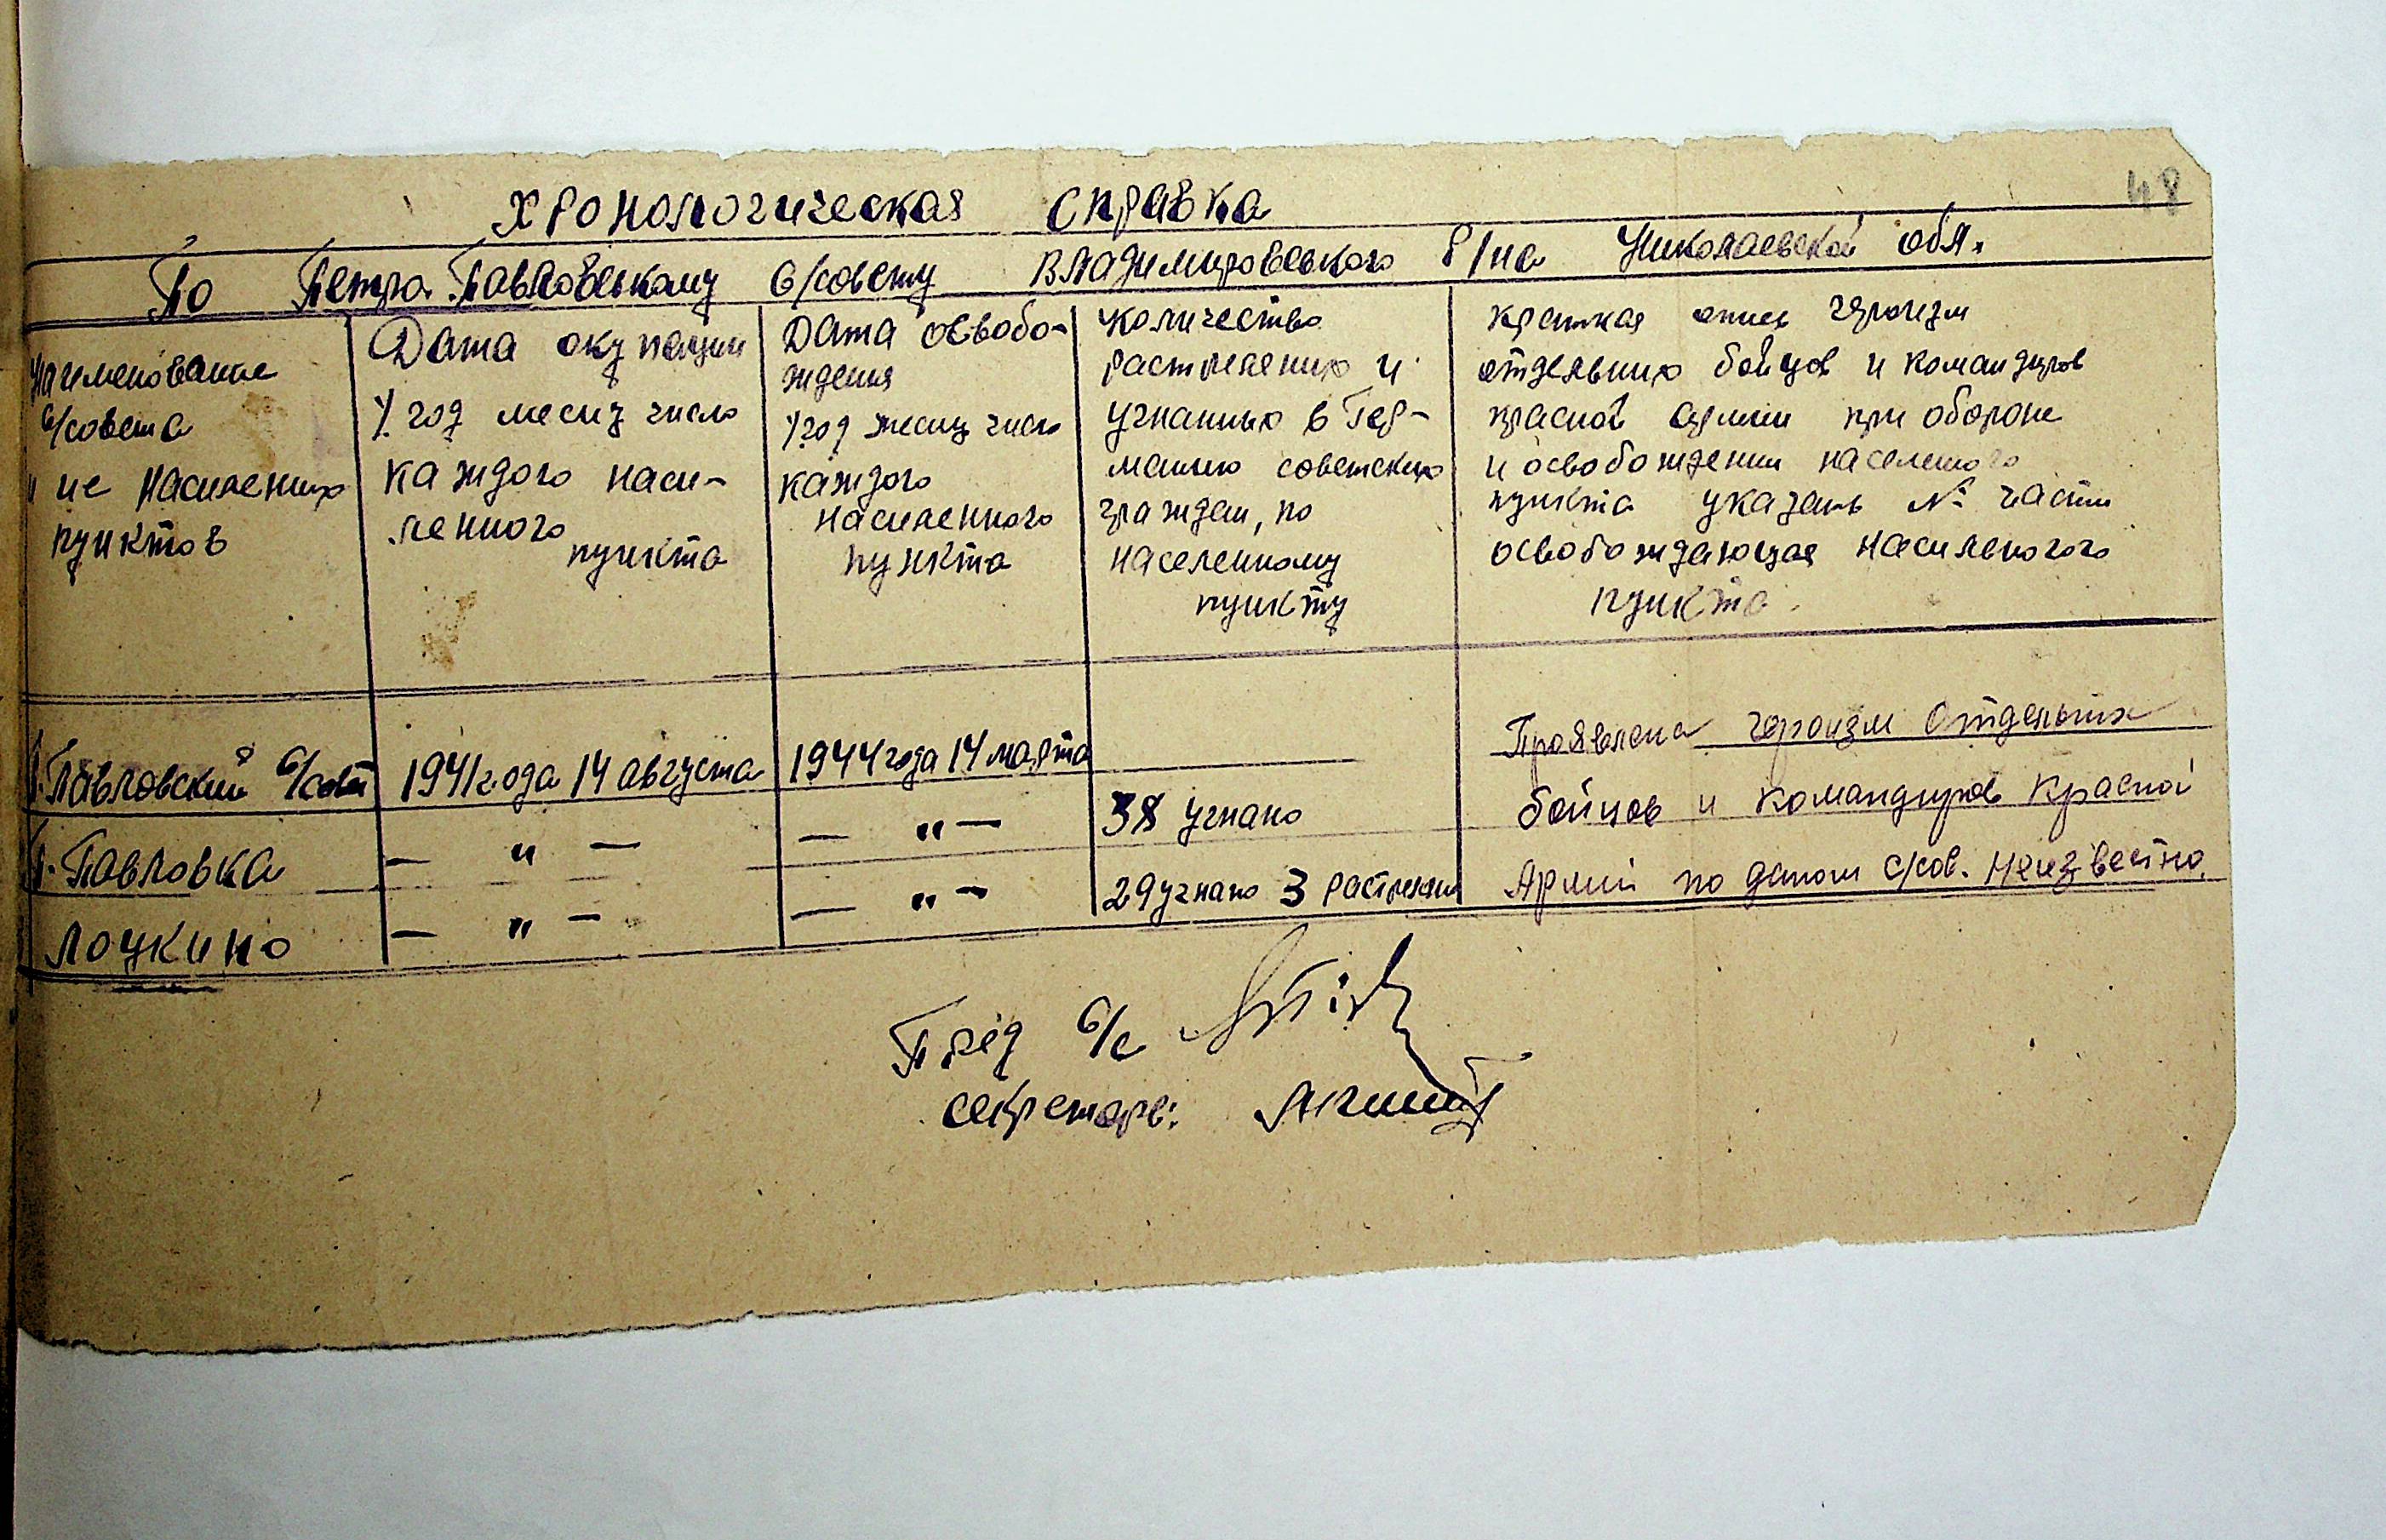 48
Хронологическая справка
По Петро-Павловському с/совету Владимировського р/на Николаевской обл.
Наименование
с/совета
и не насиленых
пунктов
Дата окупации
год месиц число
каждого наси-
ленного
пункта
Дата освобо-
ждения
год месиц число
каждого
насиленного
пункта
Количество
растреленых и
угнаных в Гер-
манию советских
граждан, по
населенному
пункту
Краткая опись героизм
отдельных бойцов и командиров
красной армии при обороне
и освобождении населеного
пункта указать № части
освобождающая насиленогого
пункта.
П.Павловский с/совет 1941 года 14 августа 1944 года 14 марта
П-Павловка — " — — " — 38 угнано
Лоцкино — " — — " — 29 угнано 3 растрелян
Проявлена героизм отдельных
бойцов и командиров Красной
Армии по даном с/сов. Неизвестно.
Пред с/с
секретарь: